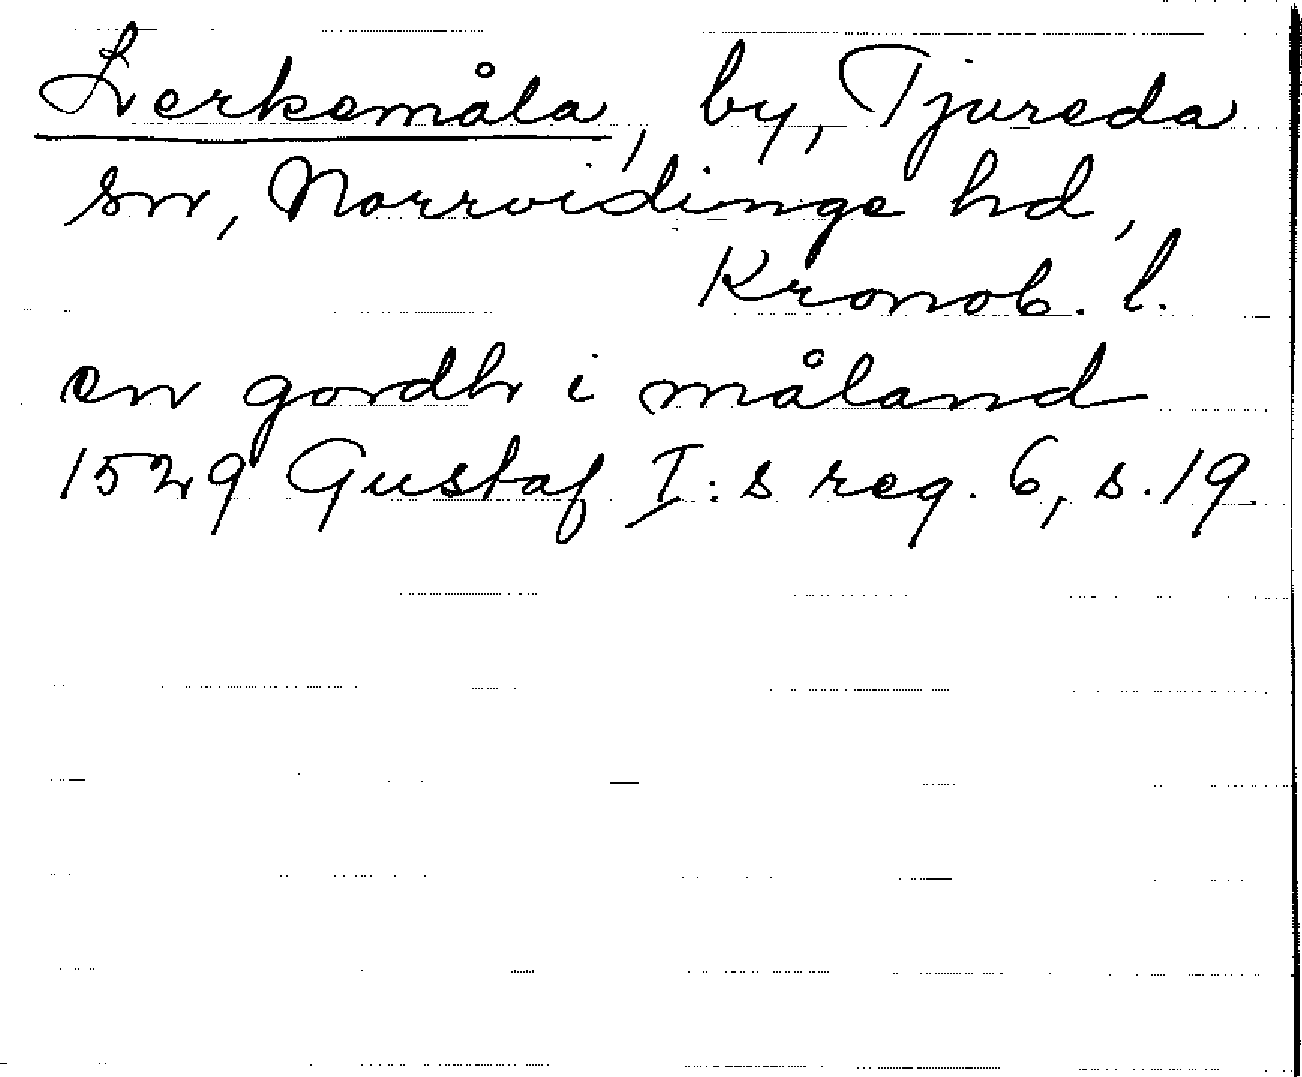 Lerkemåla, by, Tjureda
sn, Norrvidinge hd,
Kronob. l.
en gordh i måland
1529 Gustaf I:s reg. 6, s. 19